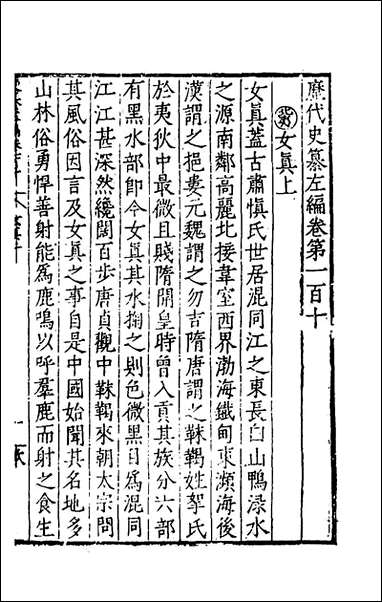 歷代史纂左編卷第一百十
夷女眞上
女眞蓋古肅愼氏世居混同江之東長白山鴨淥水
之源南鄰高麗北接韋室西界渤海鐵甸東瀕海後
漢謂之挹婁元魏謂之勿吉隋唐謂之靺鞨姓挐氏
於夷狄中最微且賤隋開皇時曾入貢其族分六部
有黑水部卽今女眞其水掬之則色微黑目爲混同
江江甚深然纔闊百步唐貞觀中靺鞨來朝太宗問
其風俗因言及女眞之事自是中國始聞其名地多
山林俗勇悍善射能爲鹿鳴以呼羣鹿而射之食生